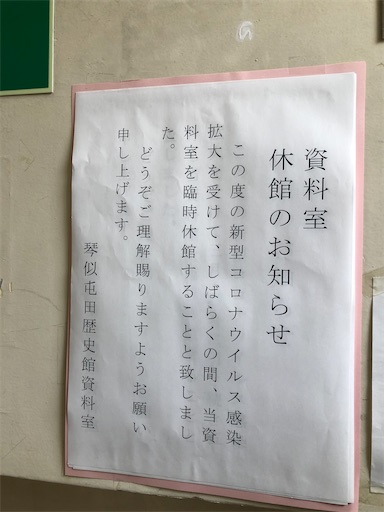 資料室
休館のお知らせ
この度の新型コロナウイルス感染
拡大を受けて、しばらくの間、当資
料室を臨時休館することと致しまし
た。
どうぞご理解賜りますようお願い
申し上げます。
琴似屯田歴史館資料室